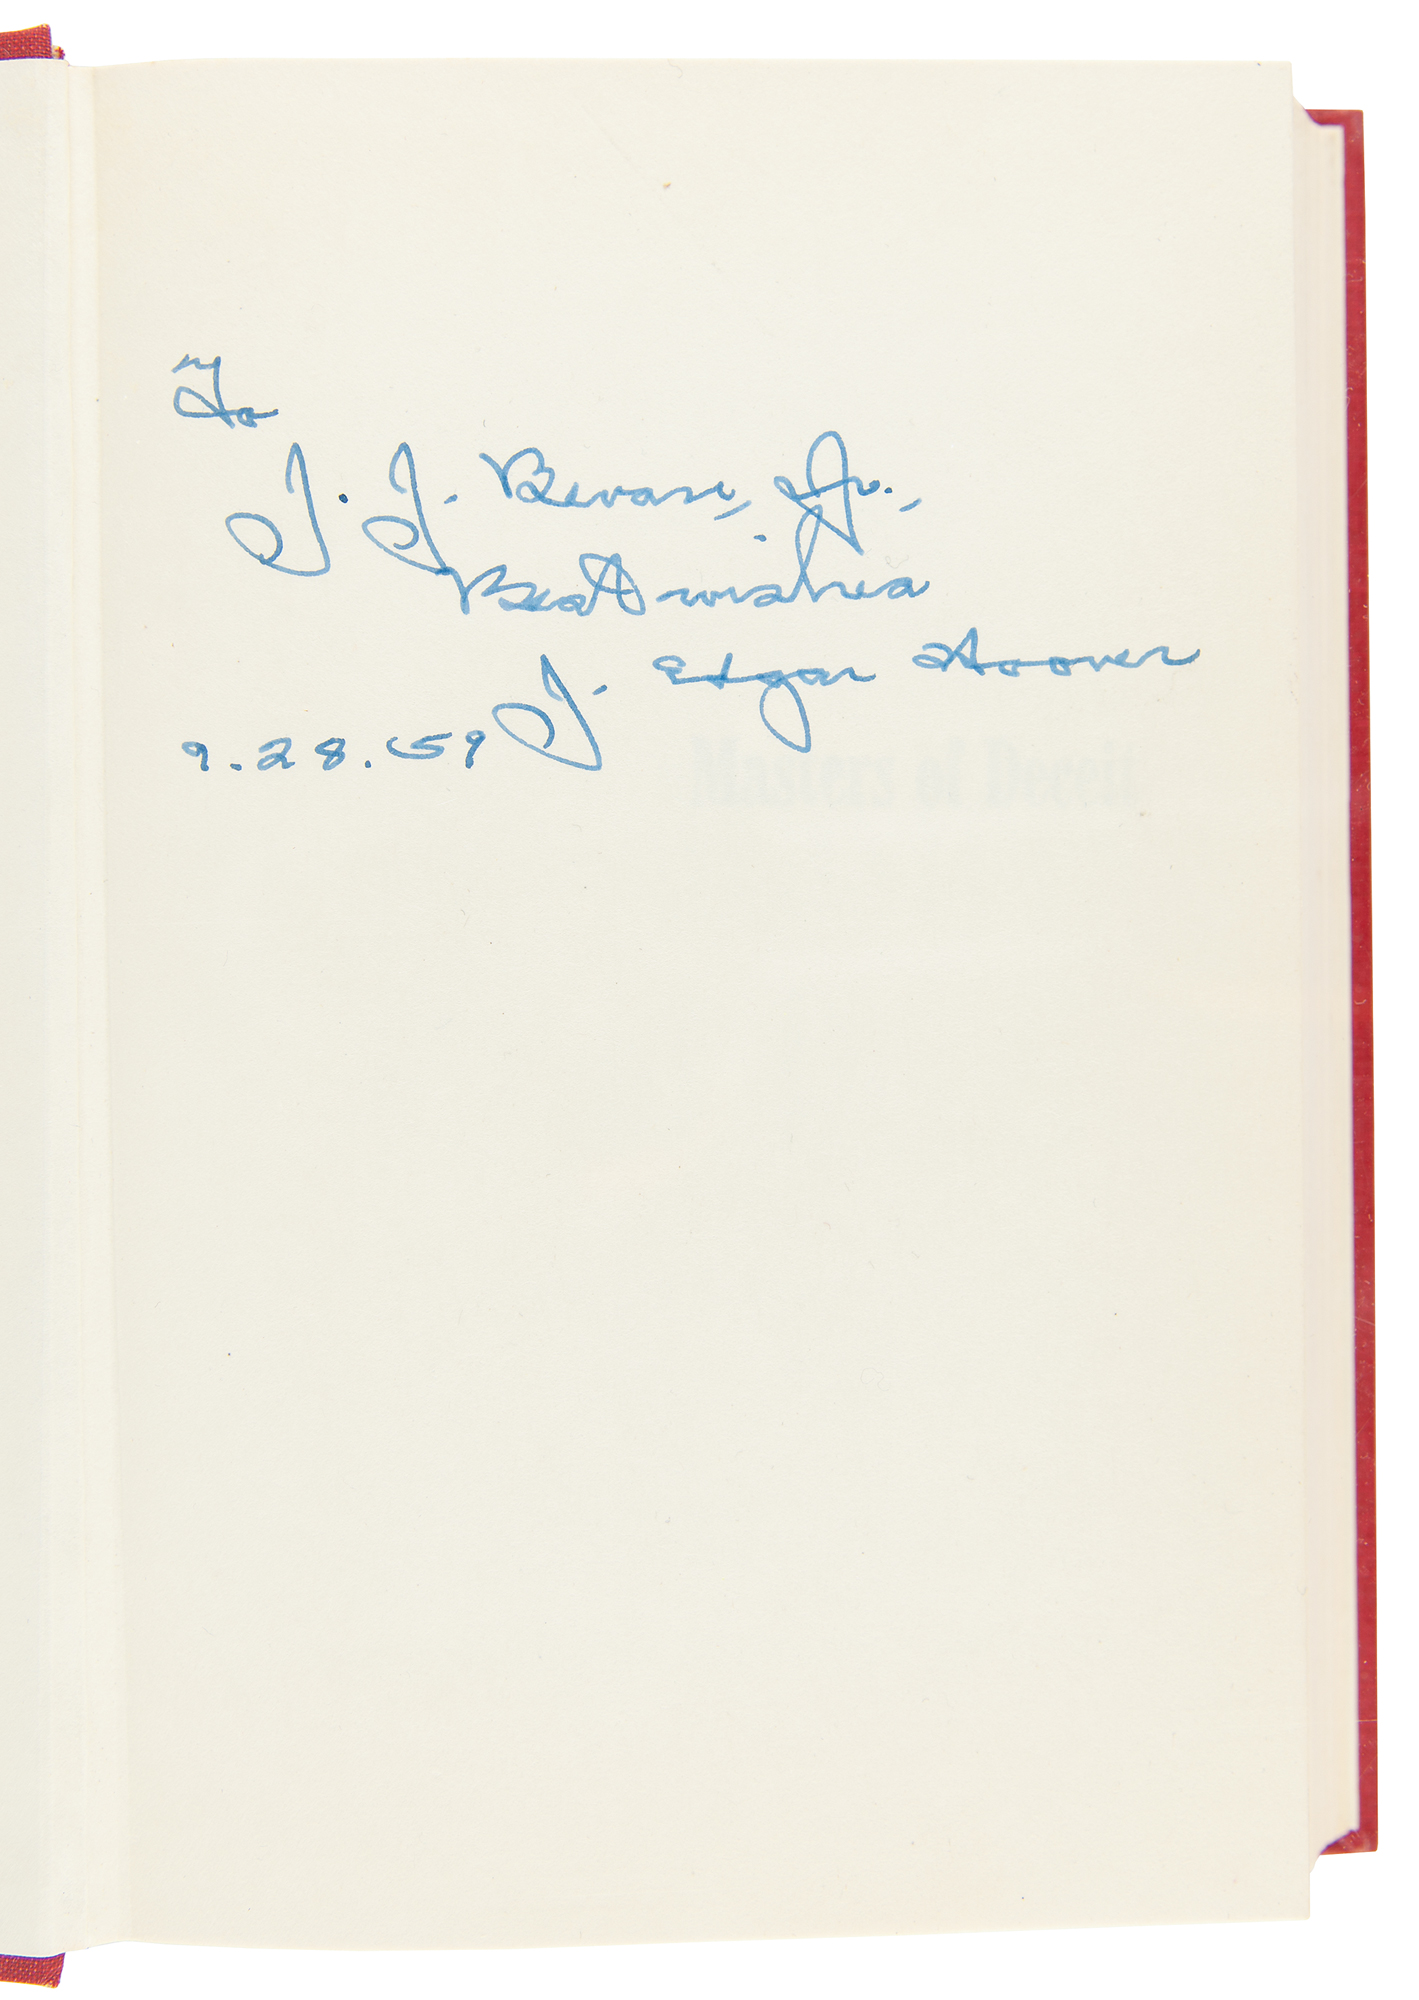 To
J. J. Bevan, Jr.,
Best wishes
J. Edgar Hoover
9.28.59
Masters of Deceit